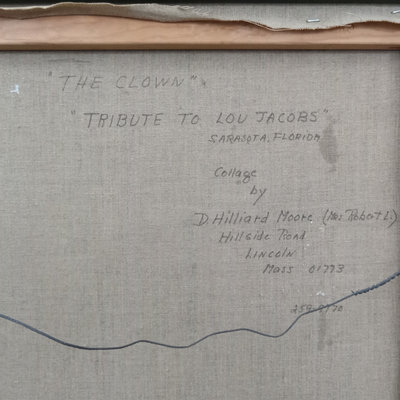 "THE CLOWN"
"TRIBUTE TO LOU JACOBS"
SARASOTA, FLORIDA
Collage
by
D. Hilliard Moore (Mrs. Robert L.)
Hillside Road
LINCOLN
Mass 01773